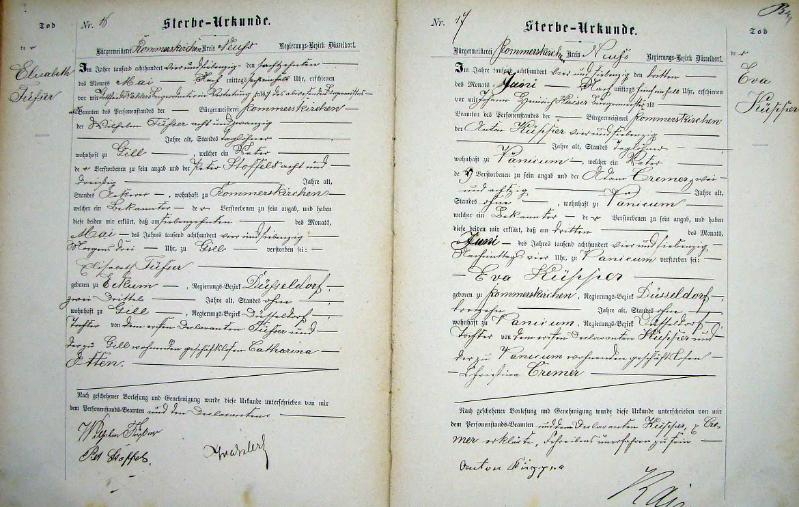 Tod
der
Elisabeth
Füßer
Nr. 16
Sterbe-Urkunde.
Bürgermeisterei Rommerskirchen Kreis Neuß Regierungs-Bezirk Düsseldorf.
Im Jahre tausend achthundert vier und siebenzig den
des Monats Mai mittags Uhr, erschienen
vor
Beamten des Personenstandes der Bürgermeisterei Rommerskirchen
der Wilhelm Füßer acht und zwanzig
Jahre alt, Standes
wohnhaft zu Gill, welcher ein Vater
der Verstorbenen zu sein angab und der Peter Stoffels acht und
dreißig Jahre alt,
Standes , wohnhaft zu Rommerskirchen
welcher ein Bekannter der Verstorbenen zu sein angab, und haben
diese beiden mir erklärt, daß am siebenzehnten des Monats
Mai des Jahres tausend achthundert vier und siebenzig
Morgens drei Uhr, zu Gill verstorben sei:
Elisabeth Füßer
geboren zu Eckum, Regierungs-Bezirk Düsseldorf,
zwei Drittel Jahre alt, Standes ohne
wohnhaft zu Gill, Regierungs-Bezirk Düsseldorf,
Tochter von dem ersten Declaranten Füßer und
der zu Gill wohnenden geschäftslosen Catharina
Etten.
Nach geschehener Vorlesung und Genehmigung wurde diese Urkunde unterschrieben von mir
dem Personenstands-Beamten und den Declaranten
Wilhelm Füßer
Pet Stoffels.
Nr. 17
Sterbe-Urkunde.
Bürgermeisterei Rommerskirchen Kreis Neuß Regierungs-Bezirk Düsseldorf.
Im Jahre tausend achthundert vier und siebenzig den dritten
des Monats Juni mittags Uhr, erschienen
vor mir Heinrich Kaiser Bürgermeister als
Beamten des Personenstandes der Bürgermeisterei Rommerskirchen
der Anton Küpper vier und siebenzig
Jahre alt, Standes Taglöhner
wohnhaft zu Vanicum, welcher ein Vater
der Verstorbenen zu sein angab und der Adam Cremer zwei
und achtzig Jahre alt,
Standes ohne, wohnhaft zu Vanicum
welcher ein Bekannter der Verstorbenen zu sein angab, und haben
diese beiden mir erklärt, daß am dritten des Monats
Juni des Jahres tausend achthundert vier und siebenzig,
Nachmittags vier Uhr, zu Vanicum verstorben sei:
Eva Küpper
geboren zu Rommerskirchen, Regierungs-Bezirk Düsseldorf
Jahre alt, Standes ohne
wohnhaft zu Vanicum, Regierungs-Bezirk Düsseldorf,
Tochter von dem ersten Declaranten Küpper und
der zu Vanicum wohnenden geschäftslosen
Christina Cremer
Nach geschehener Vorlesung und Genehmigung wurde diese Urkunde unterschrieben von mir
dem Personenstands-Beamten und dem Declaranten Küpper, Cre-
mer erklärte, Schreibens unerfahren zu sein
Anton Küpper
Tod
der
Eva
Küpper